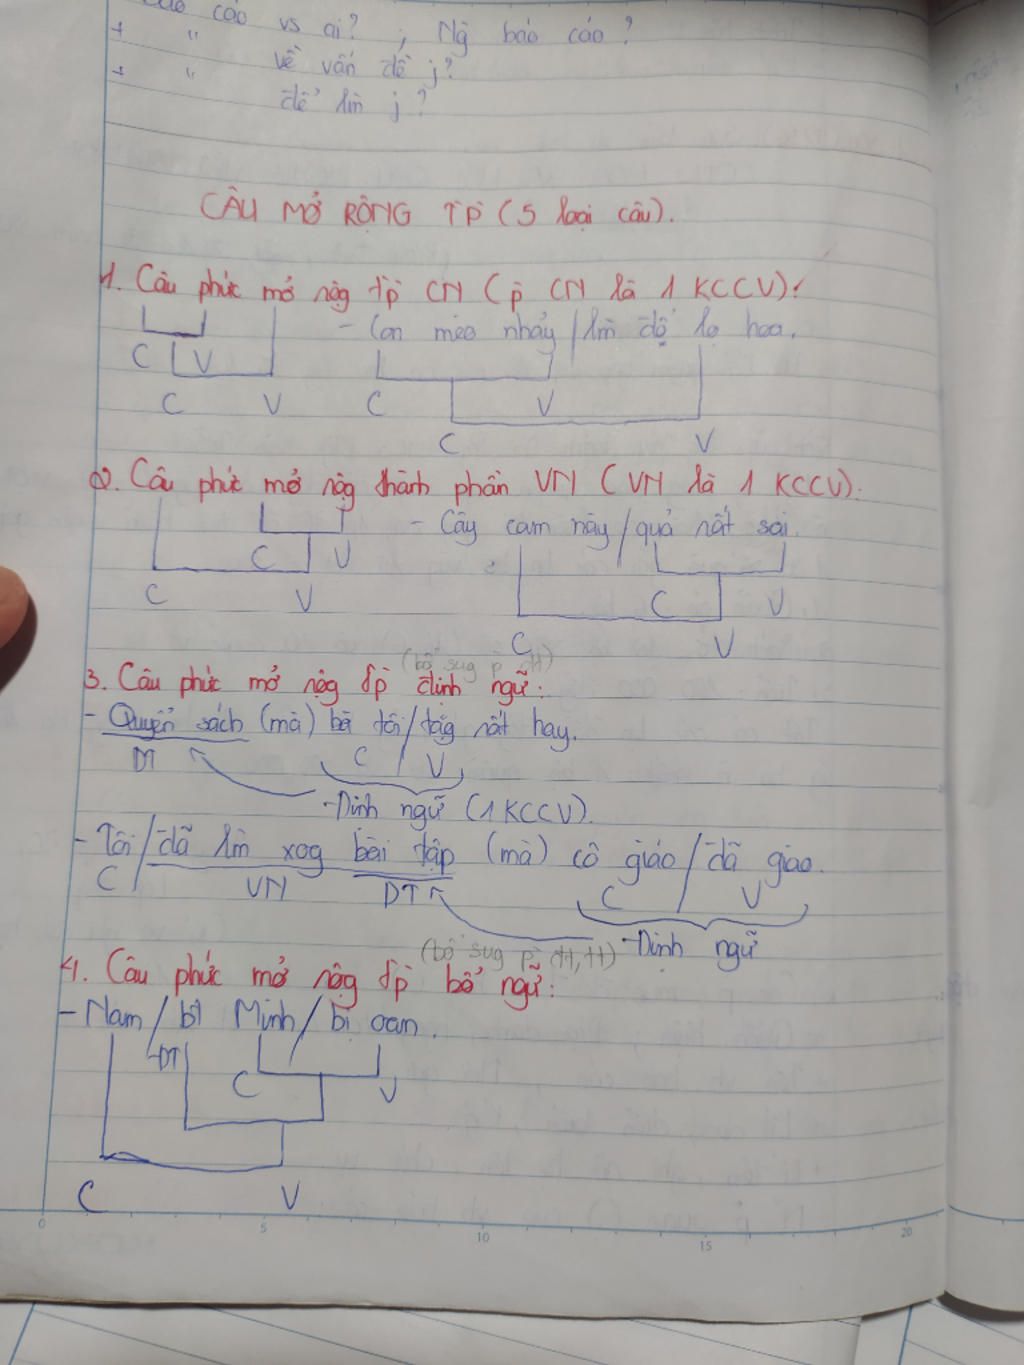 cáo vs ai? , Ng báo cáo?
+ " về vấn đề j?
+ " để lm j?
CÂU MỞ RỘNG TP (5 loại câu).
1. Câu phức mở rộng tp CN (p CN là 1 KCCV):
- Con mèo nhảy / lm đổ lọ hoa.
C V
C V C V
C V
2. Câu phức mở rộng thành phần VN (VN là 1 KCCV):
- Cây cam này / quả rất sai.
C V
C V C V
C V
(bổ sug p dt)
3. Câu phức mở rộng tp định ngữ:
- Quyển sách (mà) bà tôi / tặg rất hay.
DT C / V
Định ngữ (1 KCCV).
- Tôi / đã lm xog bài tập (mà) cô giáo / đã giao.
C VN DT C V
Định ngữ
(bổ sug p đt, tt)
4. Câu phức mở rộg tp bổ ngữ:
- Nam / bt Minh / bị oan.
ĐT
C V
C V
0 5 10 15 20